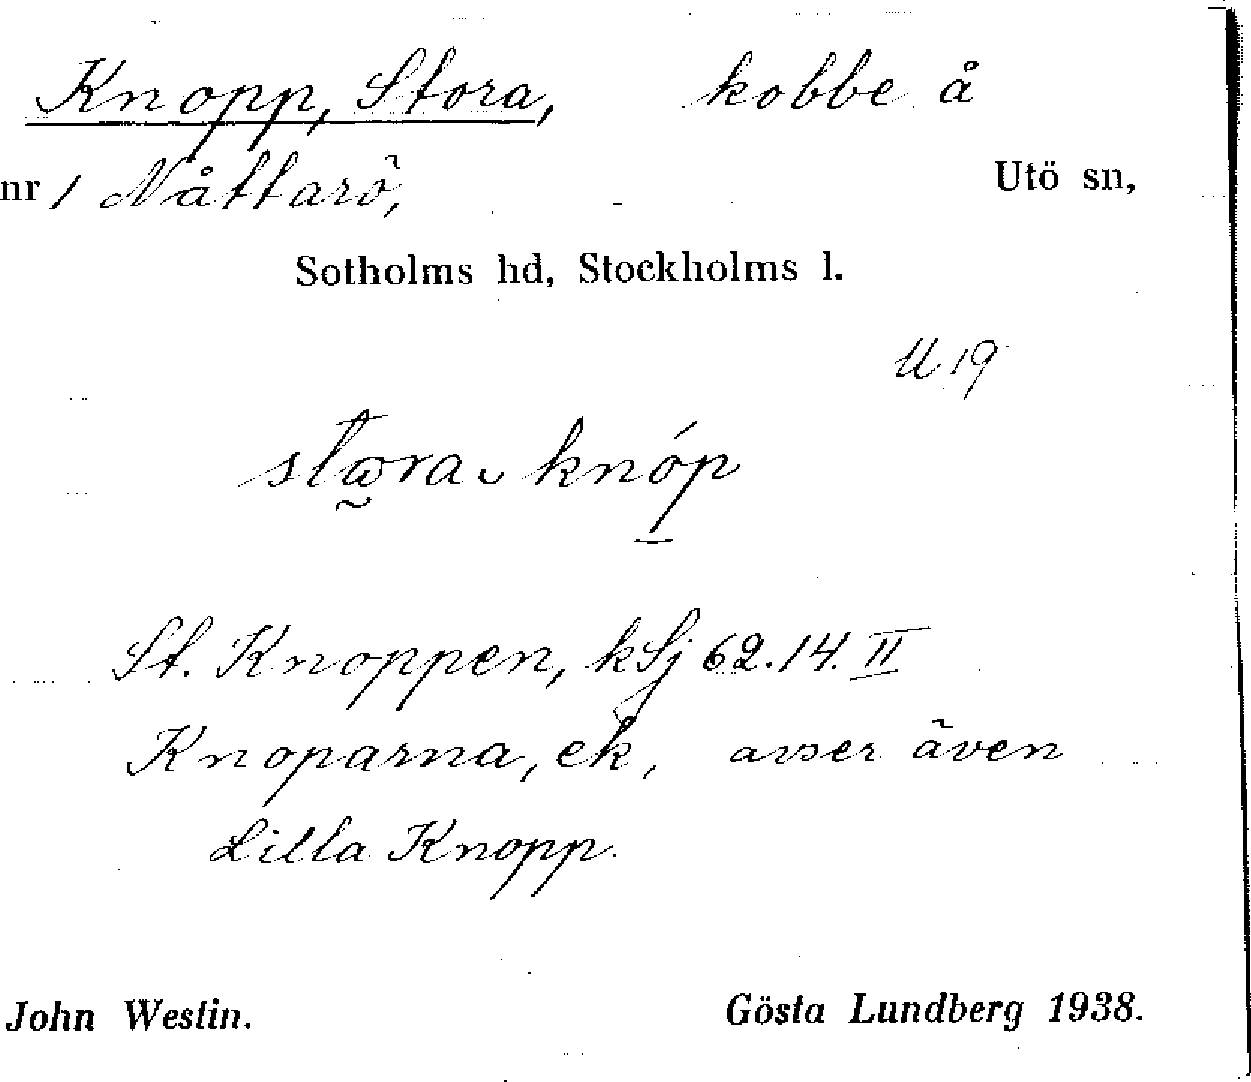 Knopp, Stora, kobbe å
nr 1 Nåttarö, Utö sn,
Sotholms hd, Stockholms l.
U 19
stωra ᴗ knóp
St. Knoppen, kSj 62.14. II
Knoparna, ek, avser även
Lilla Knopp.
John Westin. Gösta Lundberg 1938.